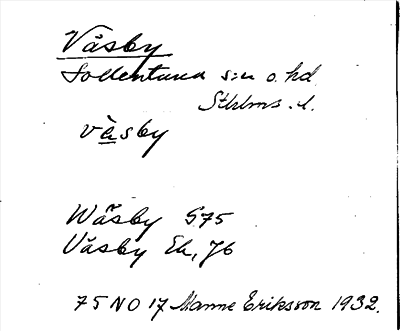 Väsby
Sollentuna s:n o. hd
Sthlms. l.
väsby
Wäsby G75
Väsby Ek, 76
75 NO 17 Manne Eriksson 1932.